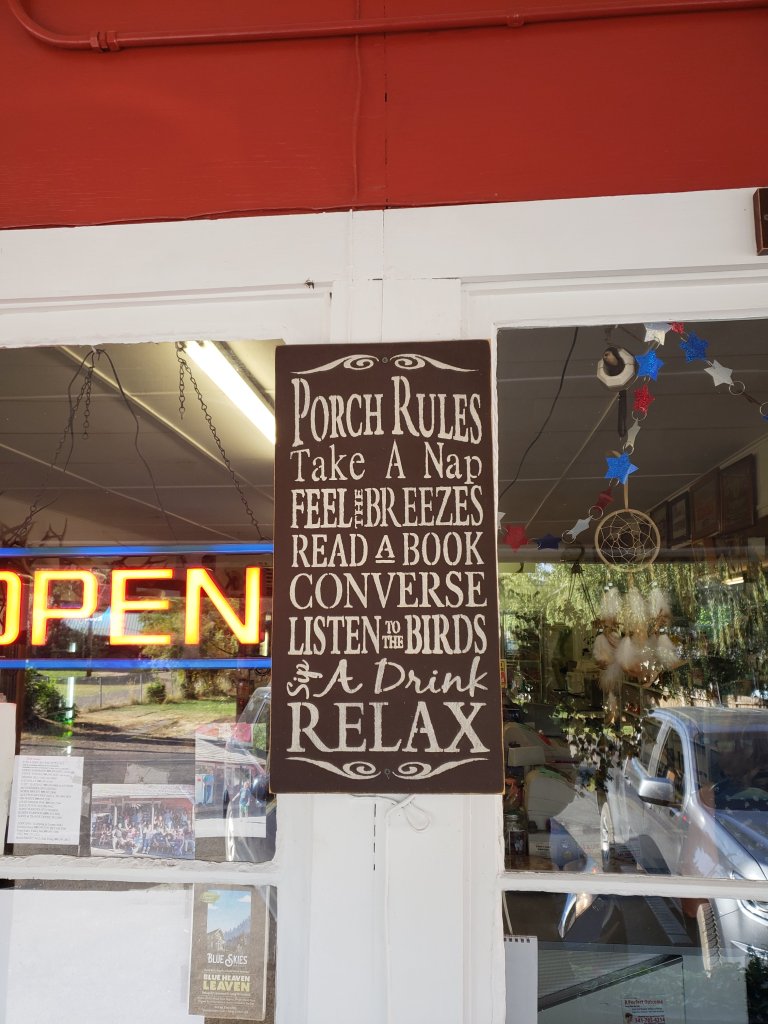 PORCH RULES
Take A Nap
FEEL THE BREEZES
READ A BOOK
CONVERSE
LISTEN TO THE BIRDS
Sip A Drink
RELAX
OPEN
BLUE SKIES
BLUE HEAVEN
LEAVEN